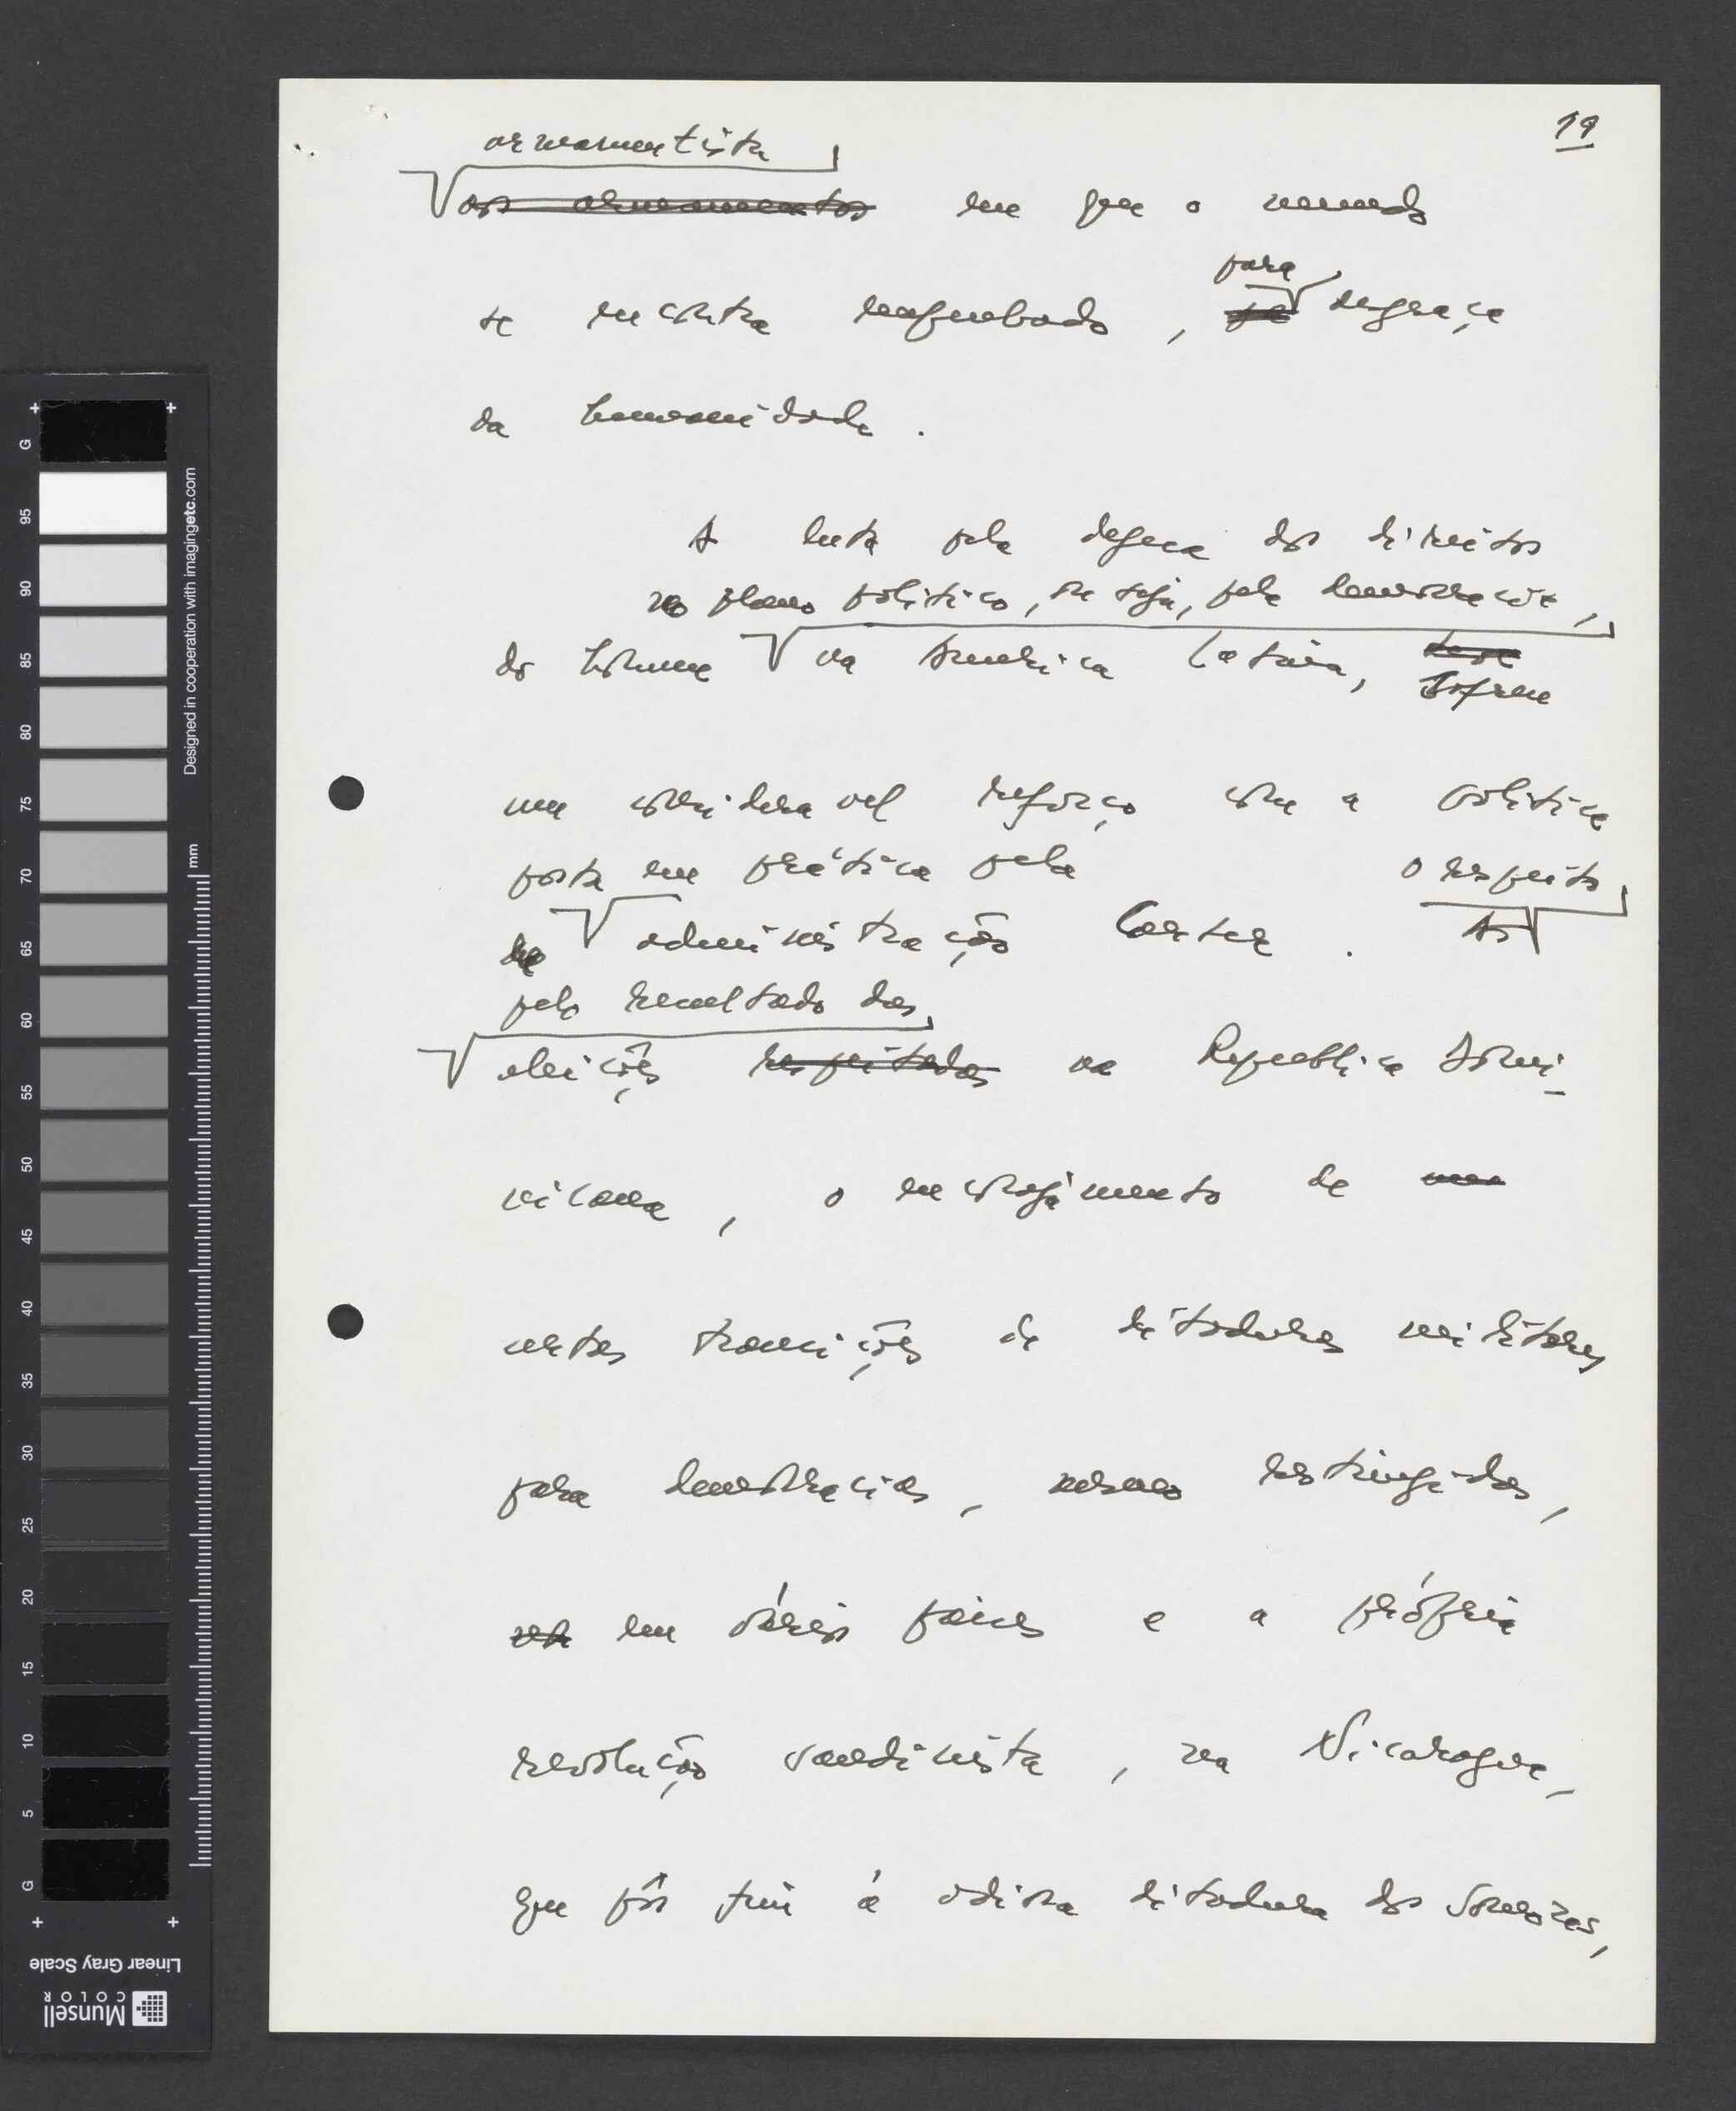 19
armamentista
dos armamentos em que o mundo
se encontra mergulhado, para desgraça
da humanidade.
A luta pela defesa dos direitos
no plano político, ou seja, pela democracia,
do homem na America Latina, teve
sofreu
um consideravel reforço com a politica
posta em prática pela
da administração Carter. O respeito
As
pelo resultado das
eleições respeitadas na Republica Domi-
nicana, o encorajamento de
certas transições de ditaduras militares
para democracias, mesmo restringidas,
em vários paises e a própria
revolução sandinista, na Nicaragua,
que pôs fim á odiosa ditadura dos Somozas,
G
95
90
85
80
75
70
65
60
55
50
45
40
35
30
25
20
15
10
5
G
mm
Designed in cooperation with imagingetc.com
Linear Gray Scale
Munsell
COLOR